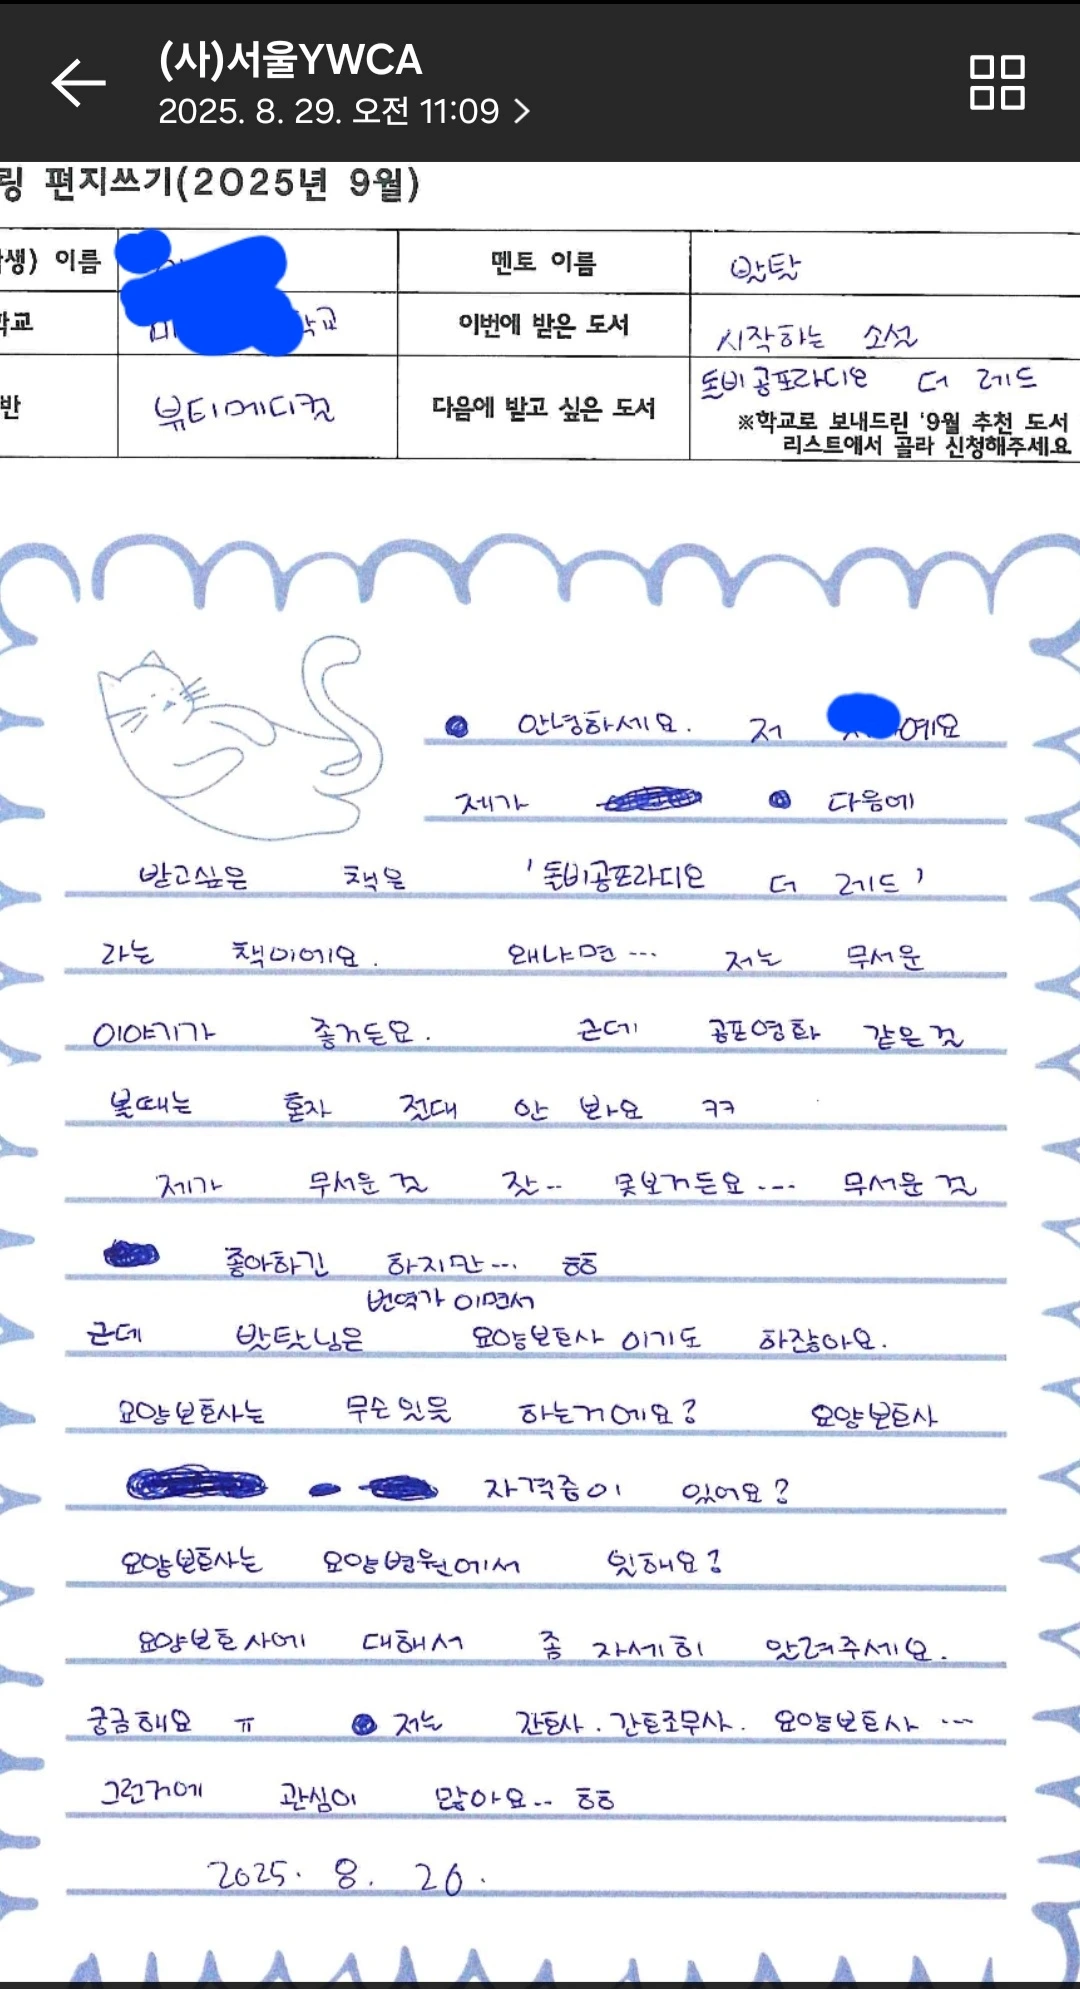 (사)서울YWCA
2025. 8. 29. 오전 11:09
링 편지쓰기(2025년 9월)
생) 이름 멘토 이름 밨탖
학교 학교 이번에 받은 도서 시작하는 소설
반 뷰티메디컬 다음에 받고 싶은 도서 돌비공포라디오 더 레드
※학교로 보내드린 '9월 추천 도서
리스트에서 골라 신청해주세요
안녕하세요. 저 예요
제가 다음에
받고싶은 책은 '돌비공포라디오 더 레드'
라는 책이에요. 왜냐면... 저는 무서운
이야기가 좋거든요. 근데 공포영화 같은걸
볼때는 혼자 절대 안 봐요 ㅋㅋ
제가 무서운걸 잘.. 못보거든요.... 무서운걸
좋아하긴 하지만... ㅎㅎ
번역가 이면서
근데 요양보호사 이기도 하잖아요.
요양보호사는 무슨일을 하는거에요? 요양보호사
자격증이 있어요?
요양보호사는 요양병원에서 일해요?
요양보호사에 대해서 좀 자세히 알려주세요.
궁금해요 ㅠ 저는 간호사. 간호조무사. 요양보호사 ...
그런거에 관심이 많아요.. ㅎㅎ
2025. 8. 20.